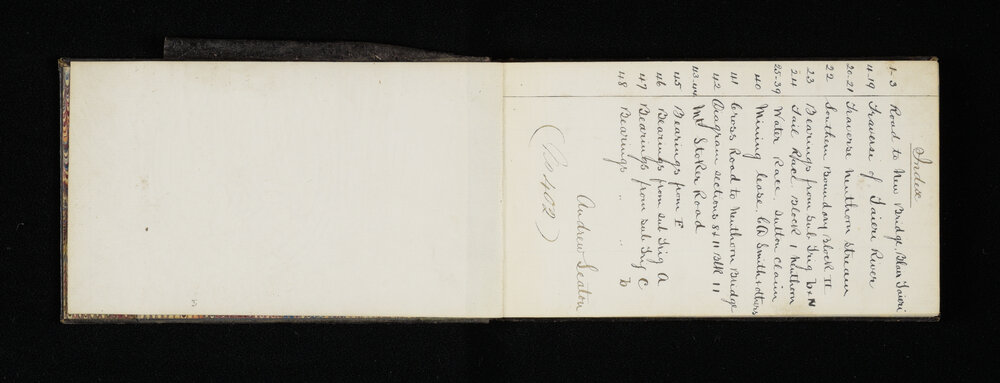 Index
1-3 Road to New Bridge, Blair Taieri
4-19 Traverse of Taieri River
20-21 Traverse Nenthorn Stream
22 Southern Boundary Block II
23 Bearings from Sub Trig D & N
24 Tail Race. Block 1 Nenthorn
25-39 Water Race, Sutton Claim
40 Mining lease, Smith & others
41 Cross Road to Nenthorn Bridge
42 Diagram sections 8 & 11 Blk 11
43-44 Mt Stoker Road
45 Bearings from F
46 Bearings from Sub Trig A
47 Bearings from Sub Trig C
48 Bearings " " D
Andrew Seaton
(Bo 402)